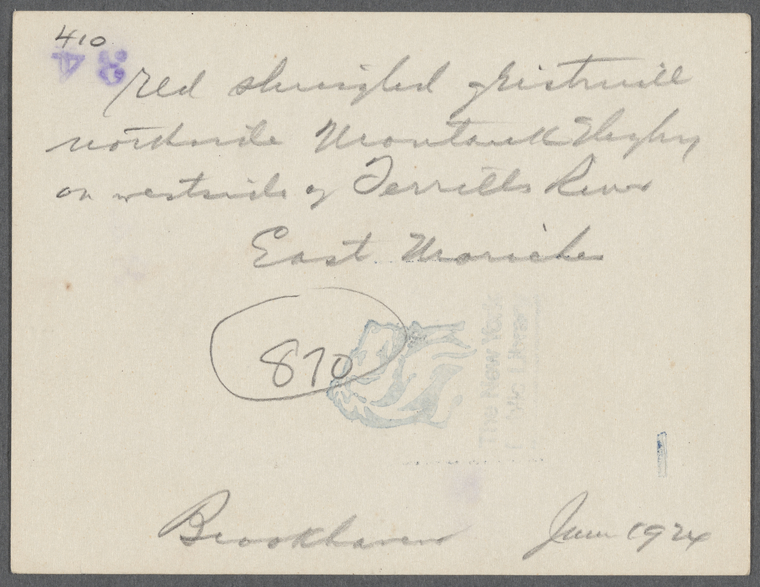 410
84
Red shingled gristmill
northside Montauk Highy
on westside of Terrills River
East Moriches
870
The New York
Brookhaven June 1924